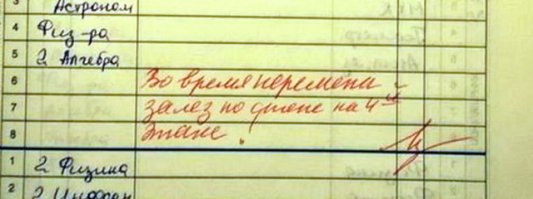 3 Астроном
4 Физ-ра
5 2 Алгебра
6 Во время перемены
7 залез по стене на 4й
8 этаж!
1 2 Физика
2 2 Информ